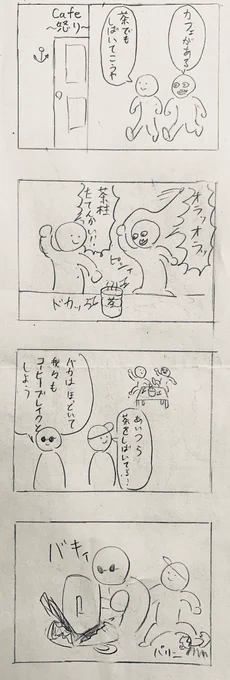 カフェがある
茶でも
しばいてこうや
Cafe
〜怒り〜
オラッオラッ
ピシッ
茶柱
たてんかい!!
茶
ドカッ
あいつら
茶をしばいてる!
バカはほっといて
我々も
コーヒーブレイクと
しよう
バキィ
バリーン